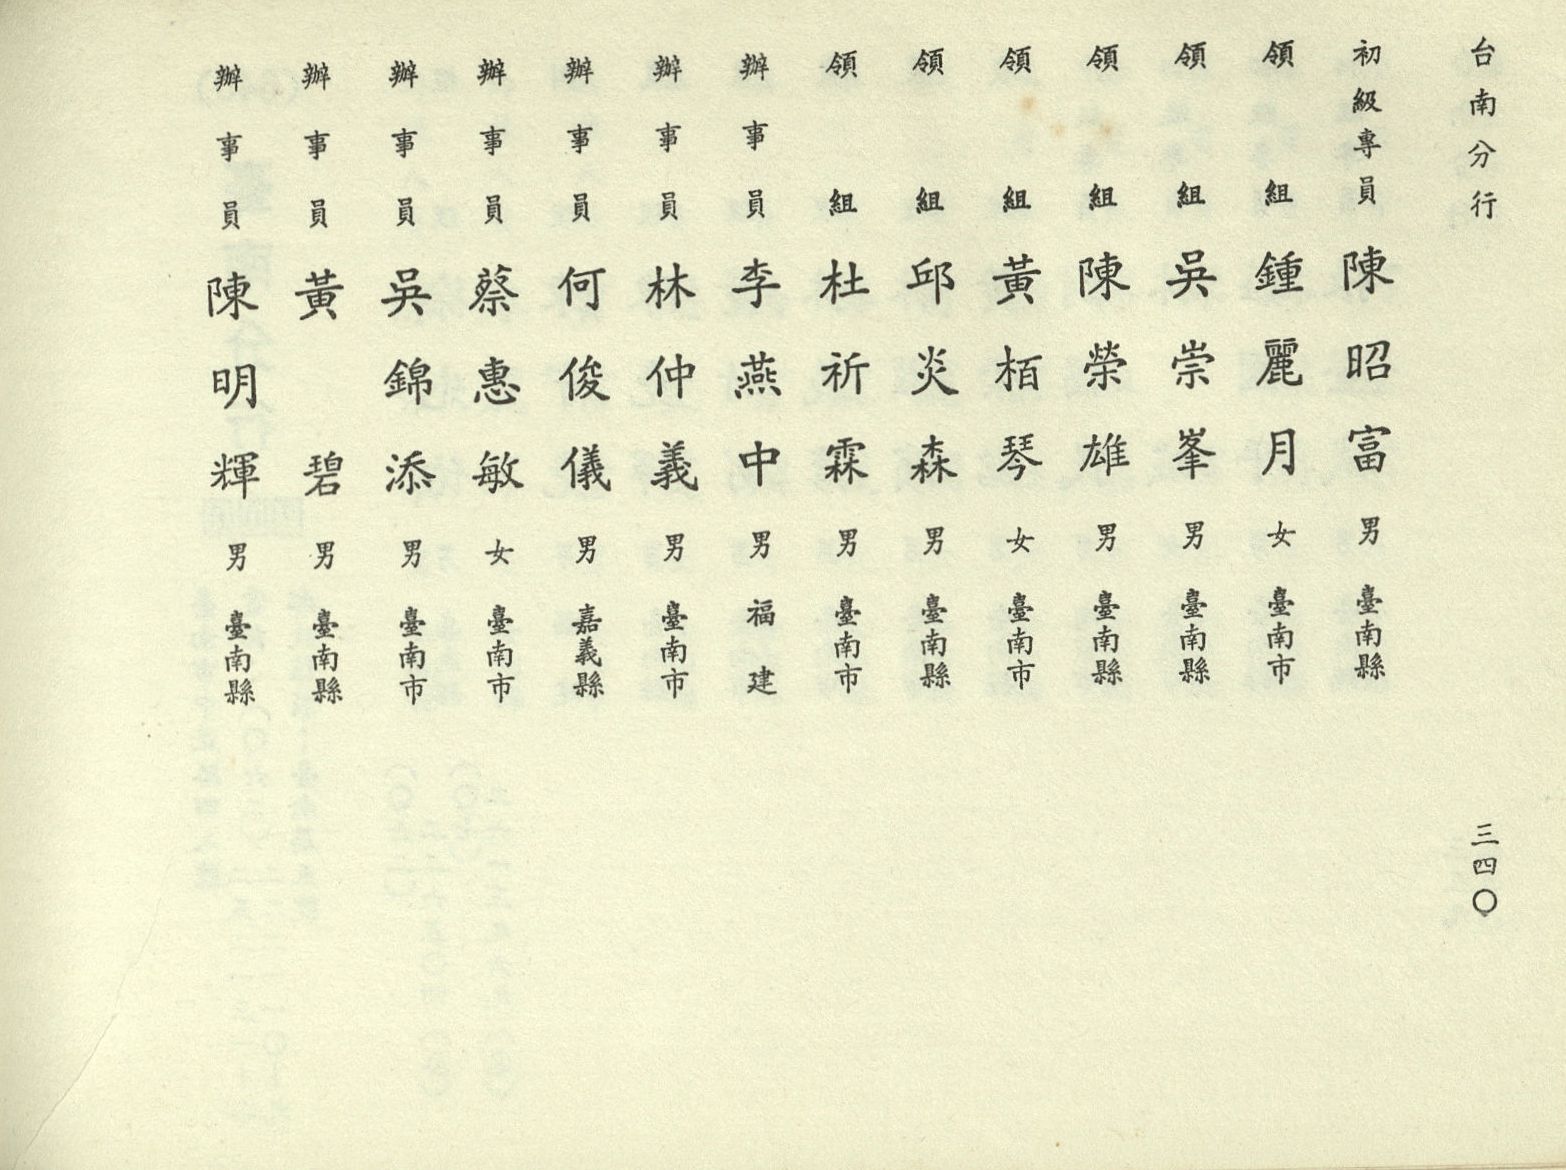 台南分行
三四〇
初級專員 陳昭富 男 臺南縣
領組 鍾麗月 女 臺南市
領組 吳崇峯 男 臺南縣
領組 陳榮雄 男 臺南縣
領組 黃栢琴 女 臺南市
領組 邱炎森 男 臺南縣
領組 杜祈霖 男 臺南市
辦事員 李燕中 男 福建
辦事員 林仲義 男 臺南市
辦事員 何俊儀 男 嘉義縣
辦事員 蔡惠敏 女 臺南市
辦事員 吳錦添 男 臺南市
辦事員 黃碧 男 臺南縣
辦事員 陳明輝 男 臺南縣